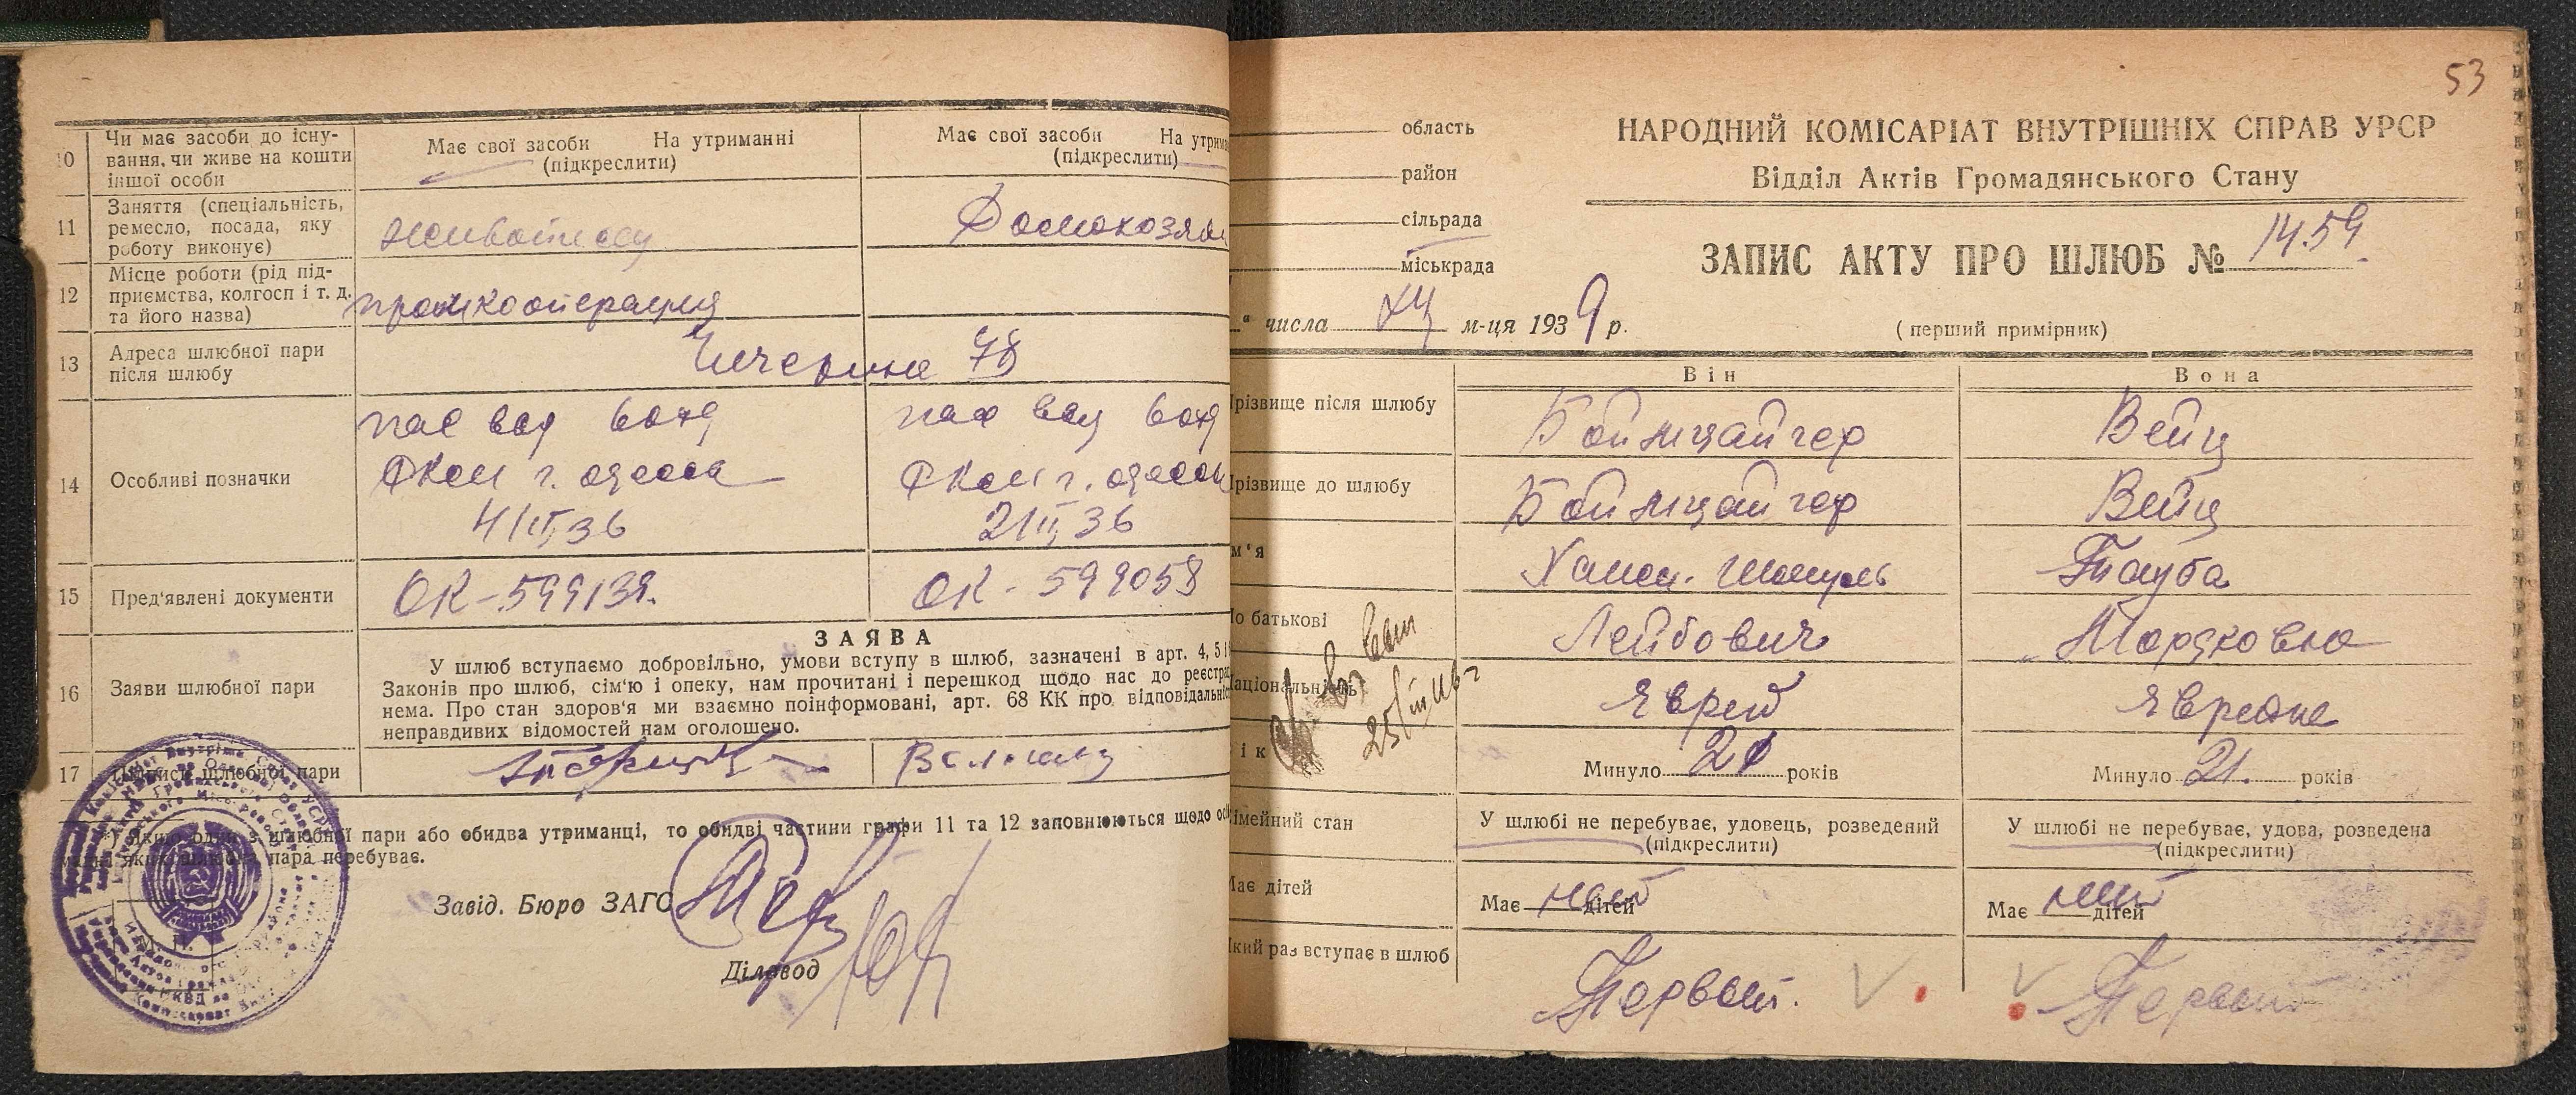 10
Чи має засоби до існу-
вання, чи живе на кошти
іншої особи
Має свої засоби На утриманні
(підкреслити)
Має свої засоби На утрима
(підкреслити)
11
Заняття (спеціальність,
ремесло, посада, яку
роботу виконує)
Домохозяй
12
Місце роботи (рід під-
приємства, колгосп і т. д.
та його назва)
промкооперация
13
Адреса шлюбної пари
після шлюбу
Чичерина
14
Особливі позначки
пас выд
РКМ г. Одесса
4/II 36
пас выд
РКМ г. Одессы
21/II 36
15
Пред'явлені документи
ОК-599139.
ОК-599058
16
Заяви шлюбної пари
ЗАЯВА
У шлюб вступаємо добровільно, умови вступу в шлюб, зазначені в арт. 4, 5 і
Законів про шлюб, сім'ю і опеку, нам прочитані і перешкод щодо нас до реєстра
нема. Про стан здоров'я ми взаємно поінформовані, арт. 68 КК про відповідальніс
неправдивих відомостей нам оголошено.
17
Підписи шлюбної пари
*) Якщо один з шлюбної пари або обидва утриманці, то обидві частини графи 11 та 12 заповнюються щодо осі
пара перебуває.
Завід. Бюро ЗАГС
Діловод
М. П.
53
область
район
сільрада
міськрада
НАРОДНИЙ КОМІСАРІАТ ВНУТРІШНІХ СПРАВ УРСР
Відділ Актів Громадянського Стану
ЗАПИС АКТУ ПРО ШЛЮБ № 1459
" числа XII м-ця 1939 р.
(перший примірник)
Він
Вона
різвище після шлюбу
Боймцайгер
Вейц
різвище до шлюбу
Боймцайгер
Вейц
м'я
Хаим. Шмуль
Тауба
о батькові
Лейбович
Мордковна
аціональність
Еврей
Еврейка
ік
Минуло 21 років
Минуло 21. років
імейний стан
У шлюбі не перебуває, удовець, розведений
(підкреслити)
У шлюбі не перебуває, удова, розведена
(підкреслити)
ає дітей
Має нет дітей
Має нет дітей
кий раз вступає в шлюб
Первый.
Первый